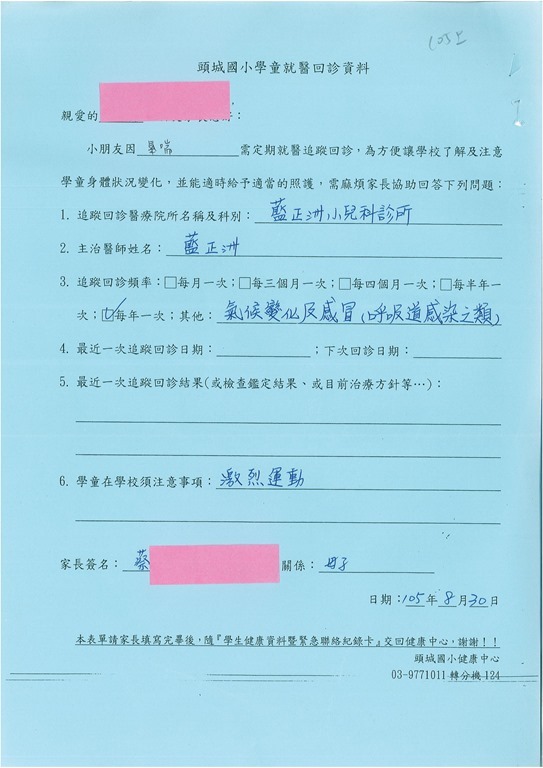 105上
頭城國小學童就醫回診資料
親愛的
小朋友因 氣喘 需定期就醫追蹤回診,為方便讓學校了解及注意
學童身體狀況變化,並能適時給予適當的照護,需麻煩家長協助回答下列問題:
1. 追蹤回診醫療院所名稱及科別: 藍正洲小兒科診所
2. 主治醫師姓名: 藍正洲
3. 追蹤回診頻率:□每月一次;□每三個月一次;□每四個月一次;□每半年一
次;☑每年一次;其他: 氣候變化及感冒(呼吸道感染之類)
4. 最近一次追蹤回診日期: ;下次回診日期:
5. 最近一次追蹤回診結果(或檢查鑑定結果、或目前治療方針等…):
6. 學童在學校須注意事項: 激烈運動
家長簽名: 蔡 關係: 母子
日期:105年8月30日
本表單請家長填寫完畢後,隨『學生健康資料暨緊急聯絡紀錄卡』交回健康中心,謝謝!!
頭城國小健康中心
03-9771011 轉分機 124